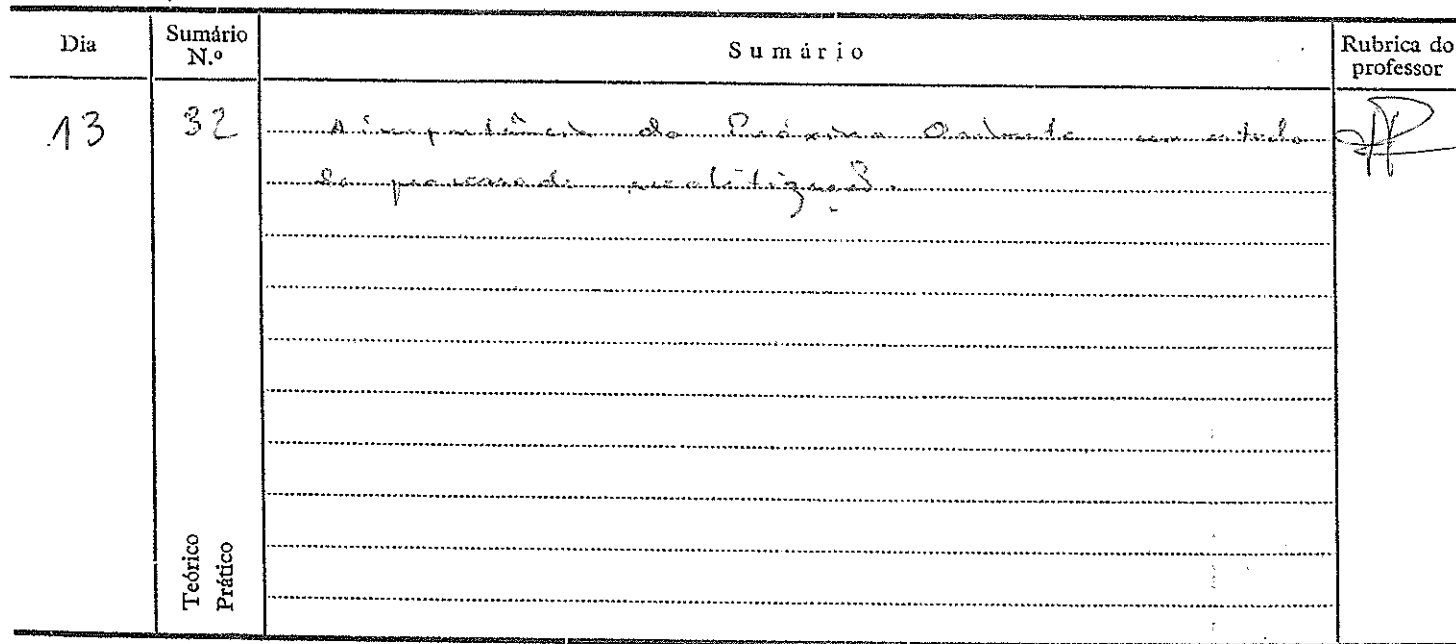 Dia
Sumário N.º
Sumário
Rubrica do professor
13
32
A importância do Próximo Oriente no estudo
do processo de neolitização.
Teórico
Prático